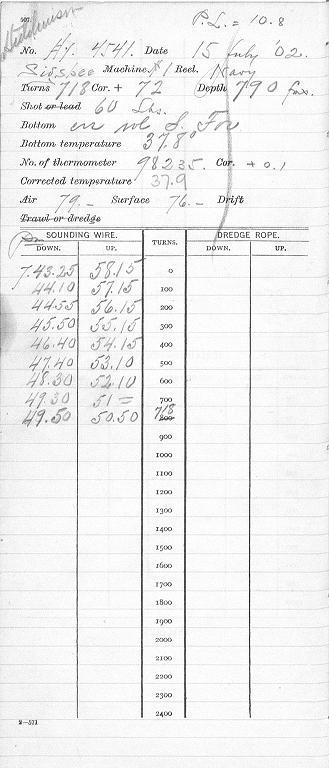 507.
Hutchinson
P.L. = 10.8
No. Hy. 4541. Date 15 July '02.
Sigsbee Machine, # 1 Reel, Navy
Turns 718 Cor. + 72 Depth 790 fms.
Shot or lead 60 Lbs.
Bottom
Bottom temperature 37.8°
No. of thermometer 98235. Cor. +0.1
Corrected temperature 37.9
Air 79.- Surface 76.- Drift
Trawl or dredge
pm
SOUNDING WIRE. TURNS. DREDGE ROPE.
DOWN. UP. DOWN. UP.
7.43.25 58.15 0
44.10 57.15 100
44.55 56.15 200
45.50 55.15 300
46.40 54.15 400
47.40 53.10 500
48.30 52.10 600
49.30 51 = 700
49.50 50.50 718 800
900
1000
1100
1200
1300
1400
1500
1600
1700
1800
1900
2000
2100
2200
2300
2400
2—571